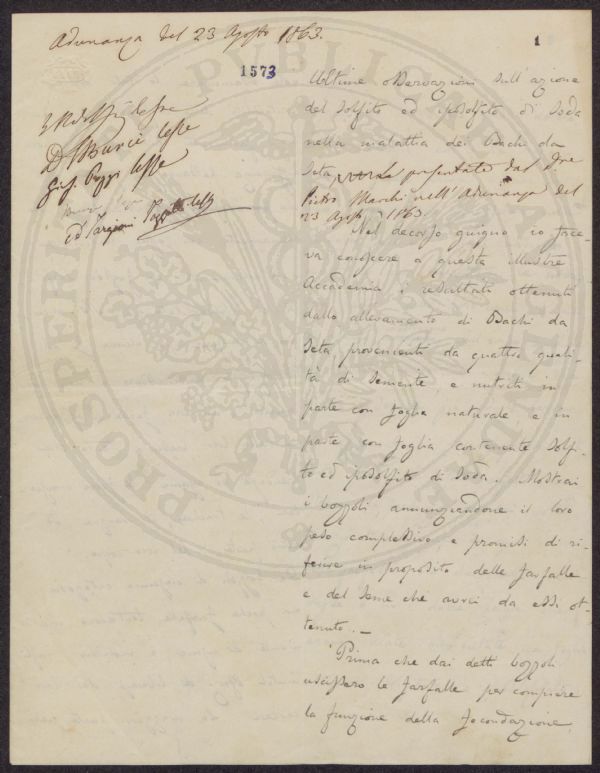 Adunanza del 23 Agosto 1863.
1
1573
Ultime osservazioni sull'azione
del Solfito ed iposolfito di Soda
nella malattia dei Bachi da
Seta presentate dal Dre
Pietro Marchi nell'Adunanza del
23 Agosto 1863.
lesse
D. Burci lesse
Gius. Poggi lesse
Ed Targioni Tozzetti lesse
Nel decorso giugno io face-
va conoscere a questa Illustre
Accademia i resultati ottenuti
dallo allevamento di Bachi da
Seta provenienti da quattro quali-
tà di Semente, e nutriti in
parte con foglia naturale e in
parte con foglia contenente Solfi-
to ed iposolfito di Soda. Mostrai
i bozzoli annunziandone il loro
peso complessivo, e promisi di ri-
ferire in proposito delle farfalle
e del Seme che avrei da essi ot-
tenuto. _
Prima che dai detti bozzoli
uscissero le farfalle per compiere
la funzione della fecondazione,
PROSPERITA PUBBLICA